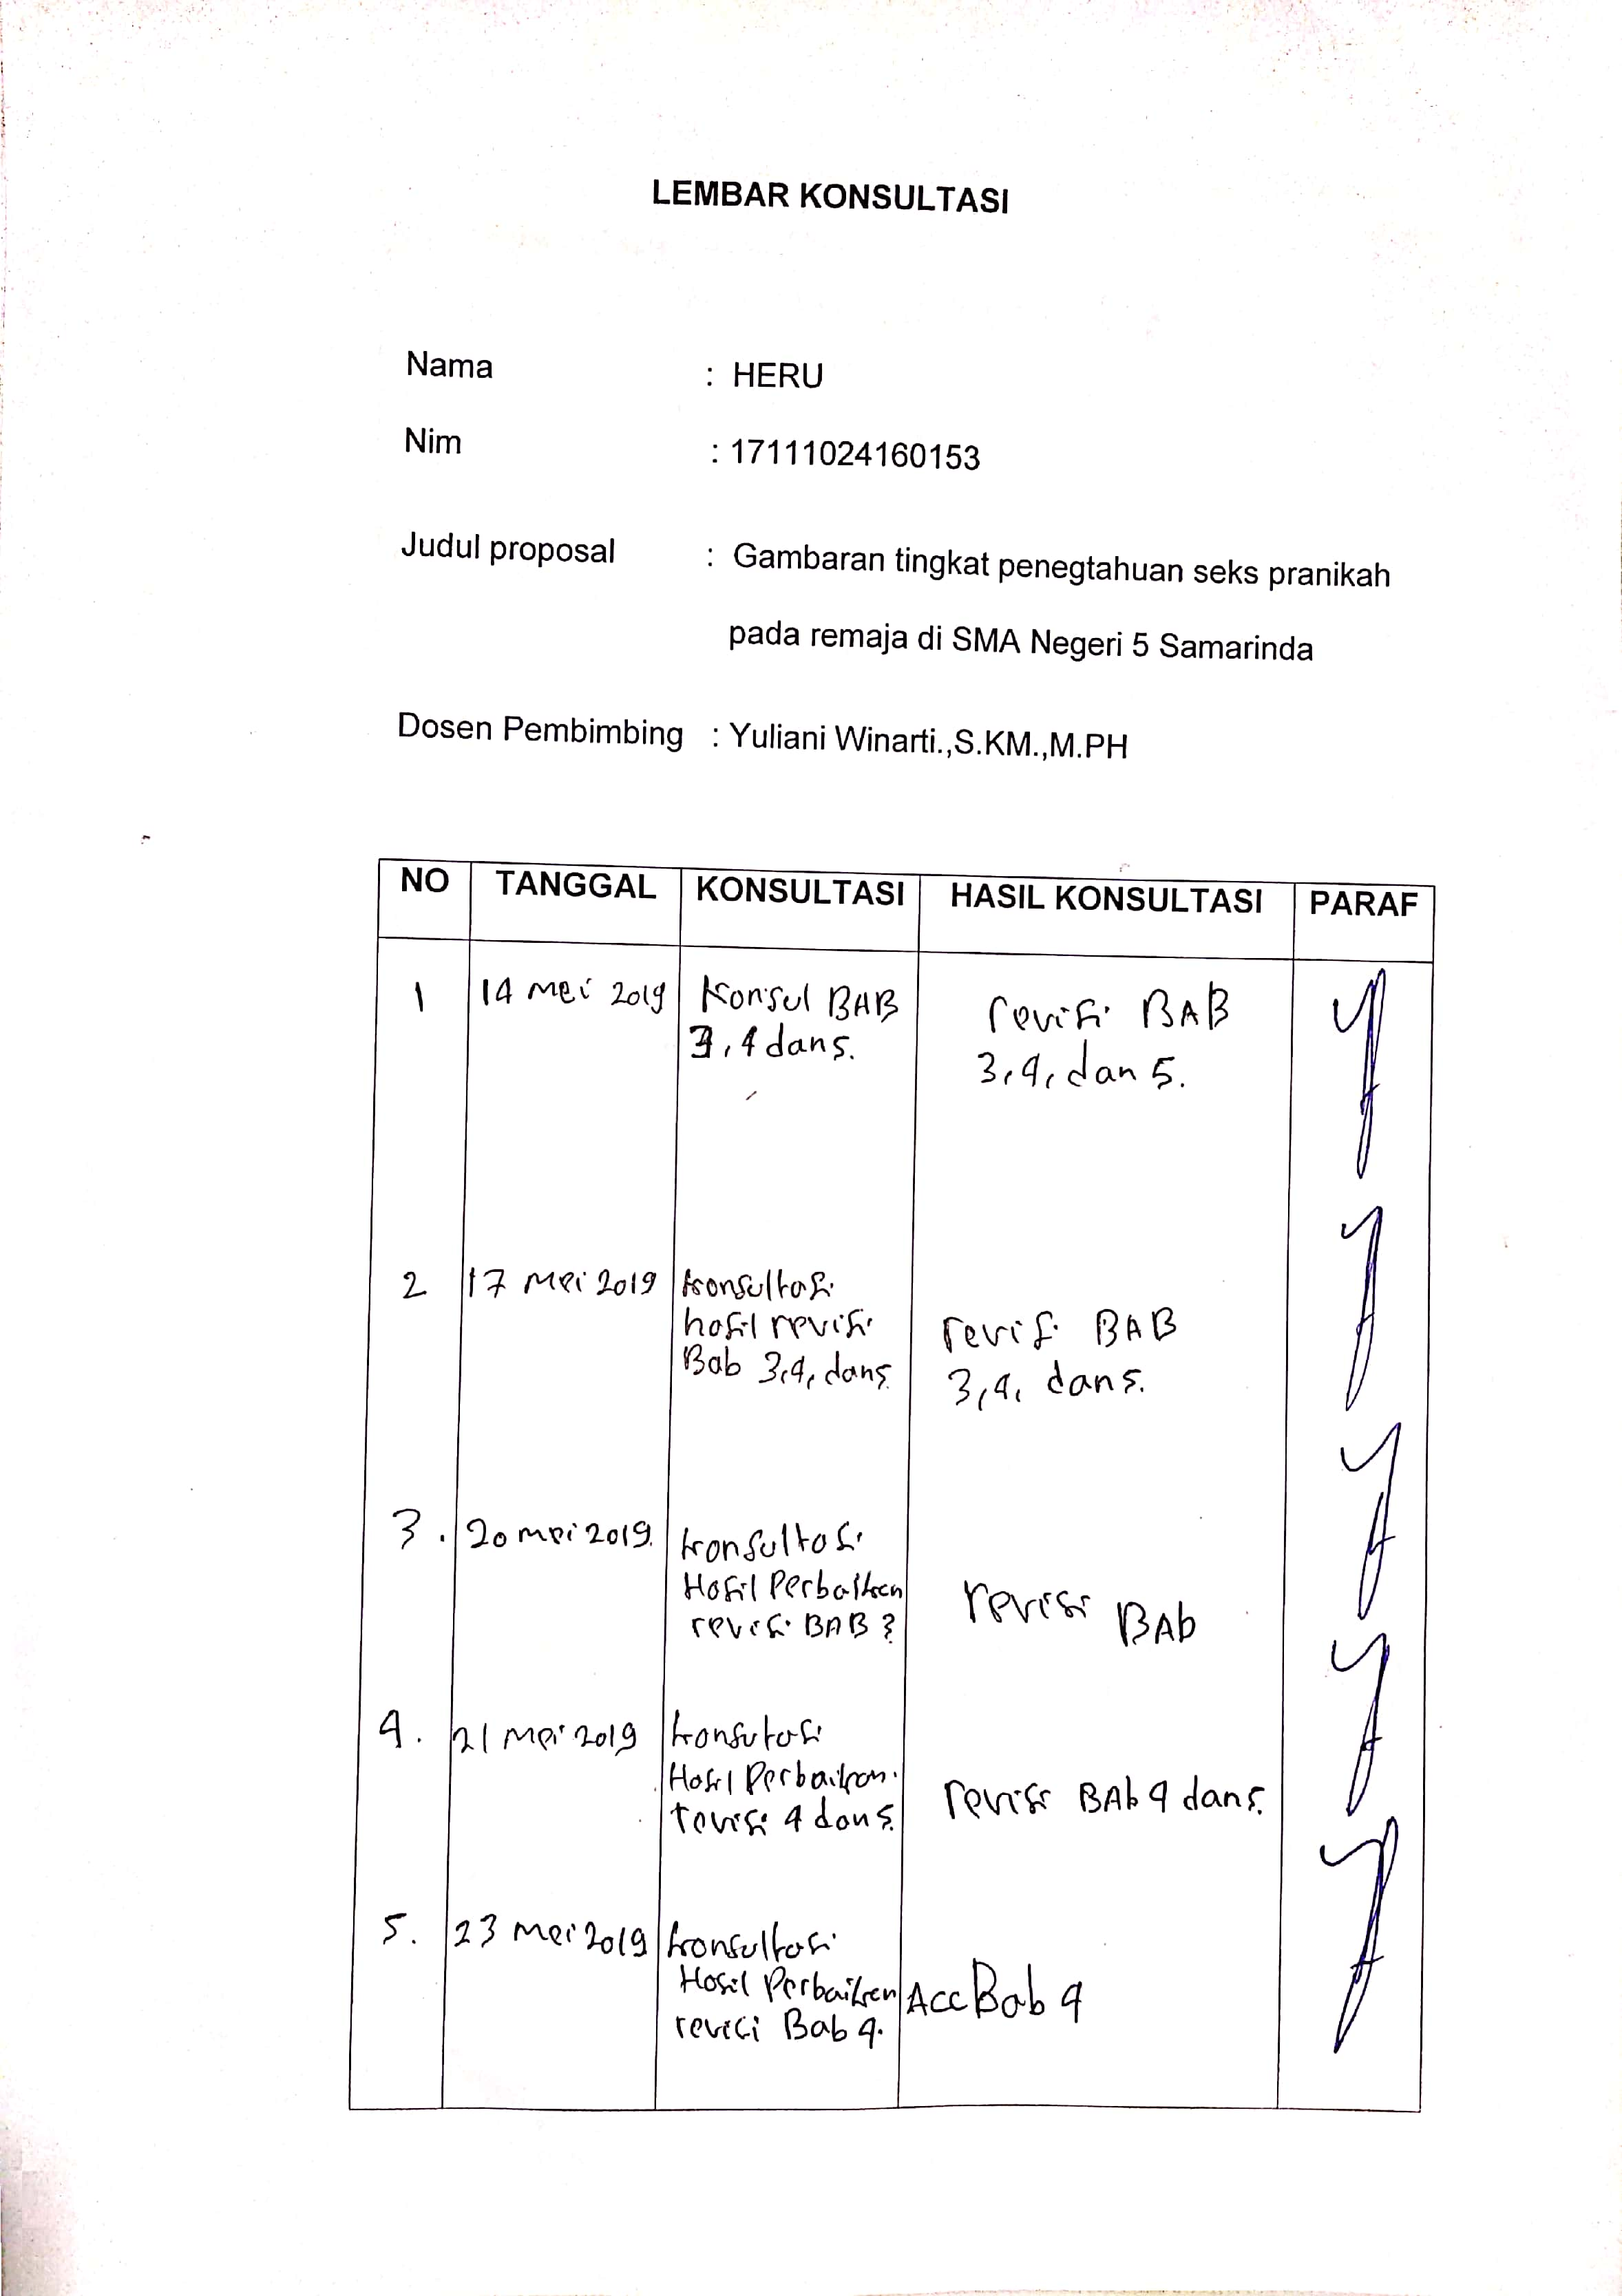 LEMBAR KONSULTASI
Nama : HERU
Nim : 17111024160153
Judul proposal : Gambaran tingkat penegtahuan seks pranikah
pada remaja di SMA Negeri 5 Samarinda
Dosen Pembimbing : Yuliani Winarti.,S.KM.,M.PH
NO TANGGAL KONSULTASI HASIL KONSULTASI PARAF
1 14 Mei 2019 Konsul BAB revisi BAB
3,4 dan 5. 3,4, dan 5.
2 17 Mei 2019 konsultasi
hasil revisi revisi BAB
Bab 3,4, dan 5. 3,4, dan 5.
3. 20 mei 2019. konsultasi
Hasil Perbaikan revisi BAb
revisi BAB 3
4. 21 Mei 2019 konsutasi
Hasil Perbaikan. revisi BAb 4 dan 5.
revisi 4 dan 5.
5. 23 Mei 2019 konsultasi
Hasil Perbaikan Acc Bab 4
revisi Bab 4.